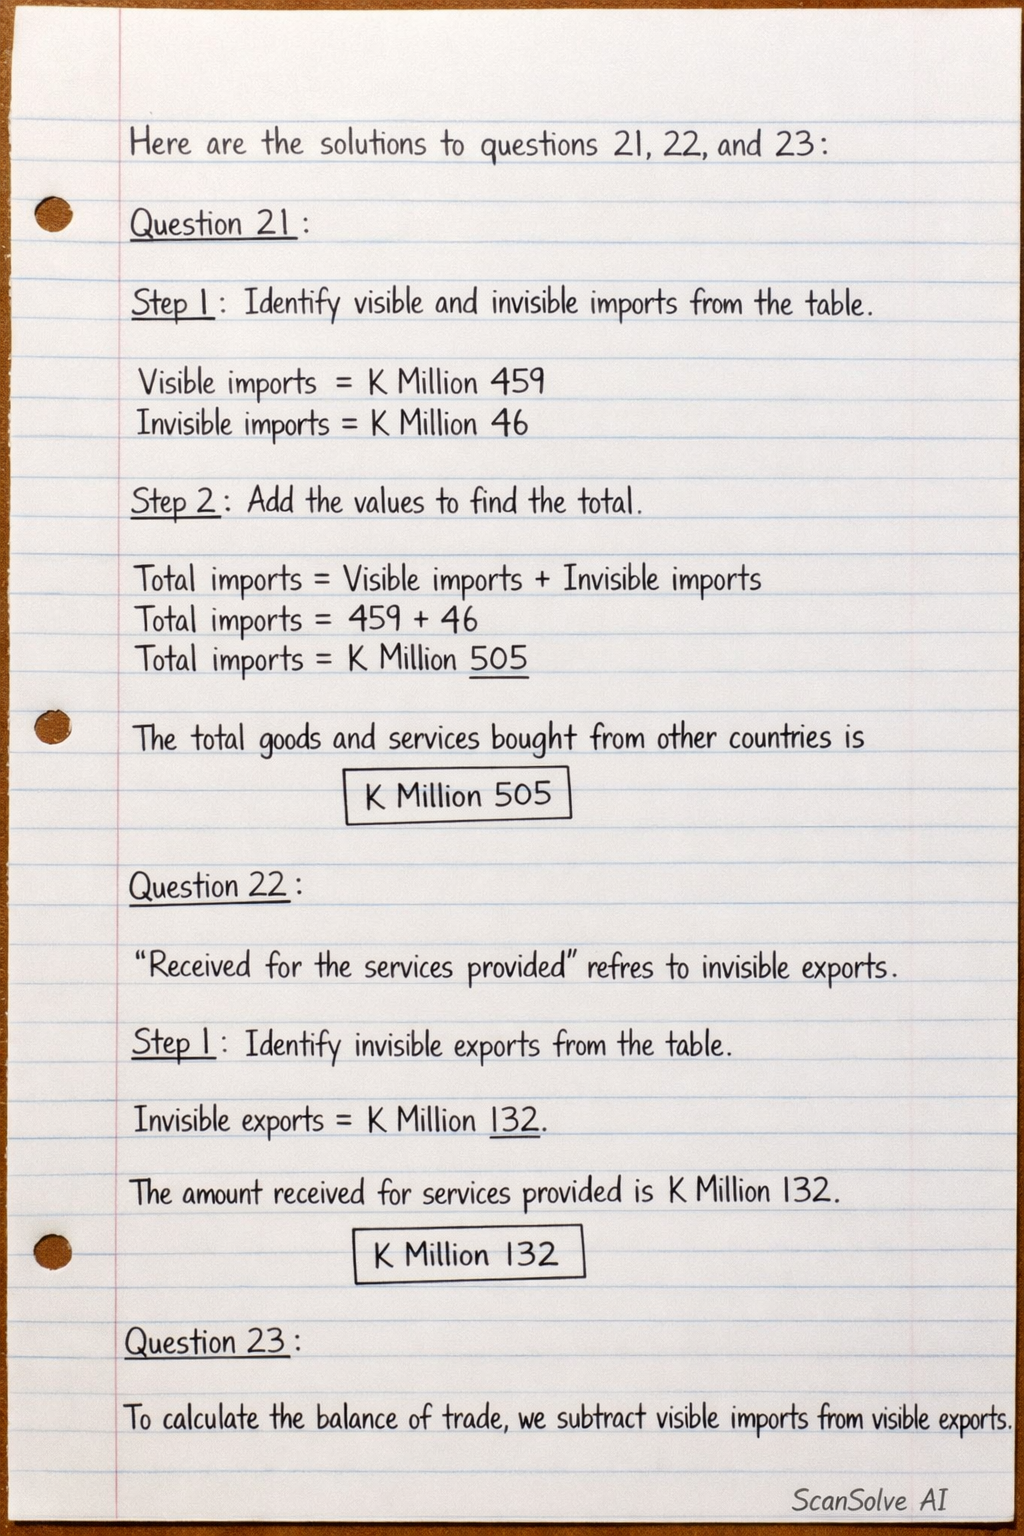 Here are the solutions to questions 21, 22, and 23:
Question 21:
Step 1: Identify visible and invisible imports from the table.
Visible imports = K Million 459
Invisible imports = K Million 46
Step 2: Add the values to find the total.
Total imports = Visible imports + Invisible imports
Total imports = 459 + 46
Total imports = K Million 505
The total goods and services bought from other countries is
K Million 505
Question 22:
“Received for the services provided” refres to invisible exports.
Step 1: Identify invisible exports from the table.
Invisible exports = K Million 132.
The amount received for services provided is K Million 132.
K Million 132
Question 23:
To calculate the balance of trade, we subtract visible imports from visible exports.
ScanSolve AI